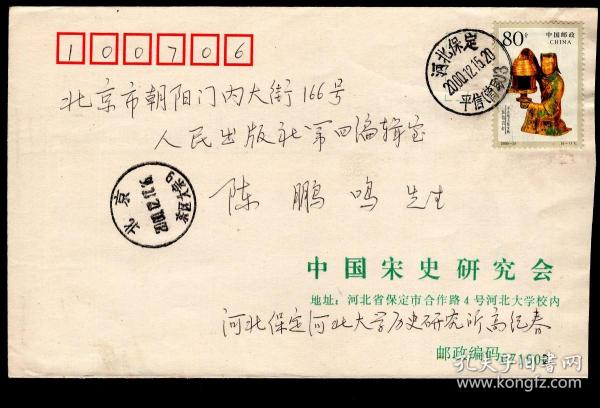 100706
80分
中国邮政
CHINA
河北保定
2000.12.15.20
北京市朝阳门内大街166号
人民出版社第四编辑室
陈鹏鸣先生
北京
中国宋史研究会
地址:河北省保定市合作路4号河北大学校内
河北保定河北大学历史研究所高纪春
邮政编码:071002
孔夫子旧书网
www.kongfz.com